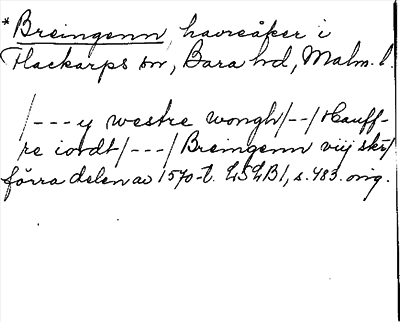 *Breingenn, havreåker i
Flackarps sn, Bara hd, Malm. l.
/---y westre wongh/--/Hauff-
re iordt/---/Breingenn viij skr/
förra delen av 1570-t. LSLB1, s. 483. orig.